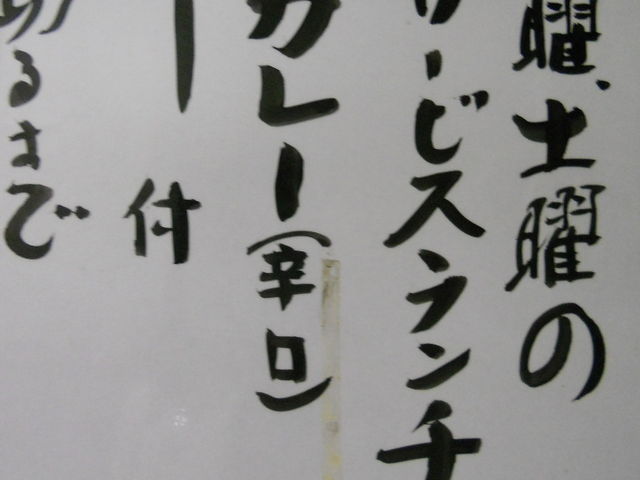 曜、土曜の
サービスランチ
カレー(辛口)
ー付
るまで